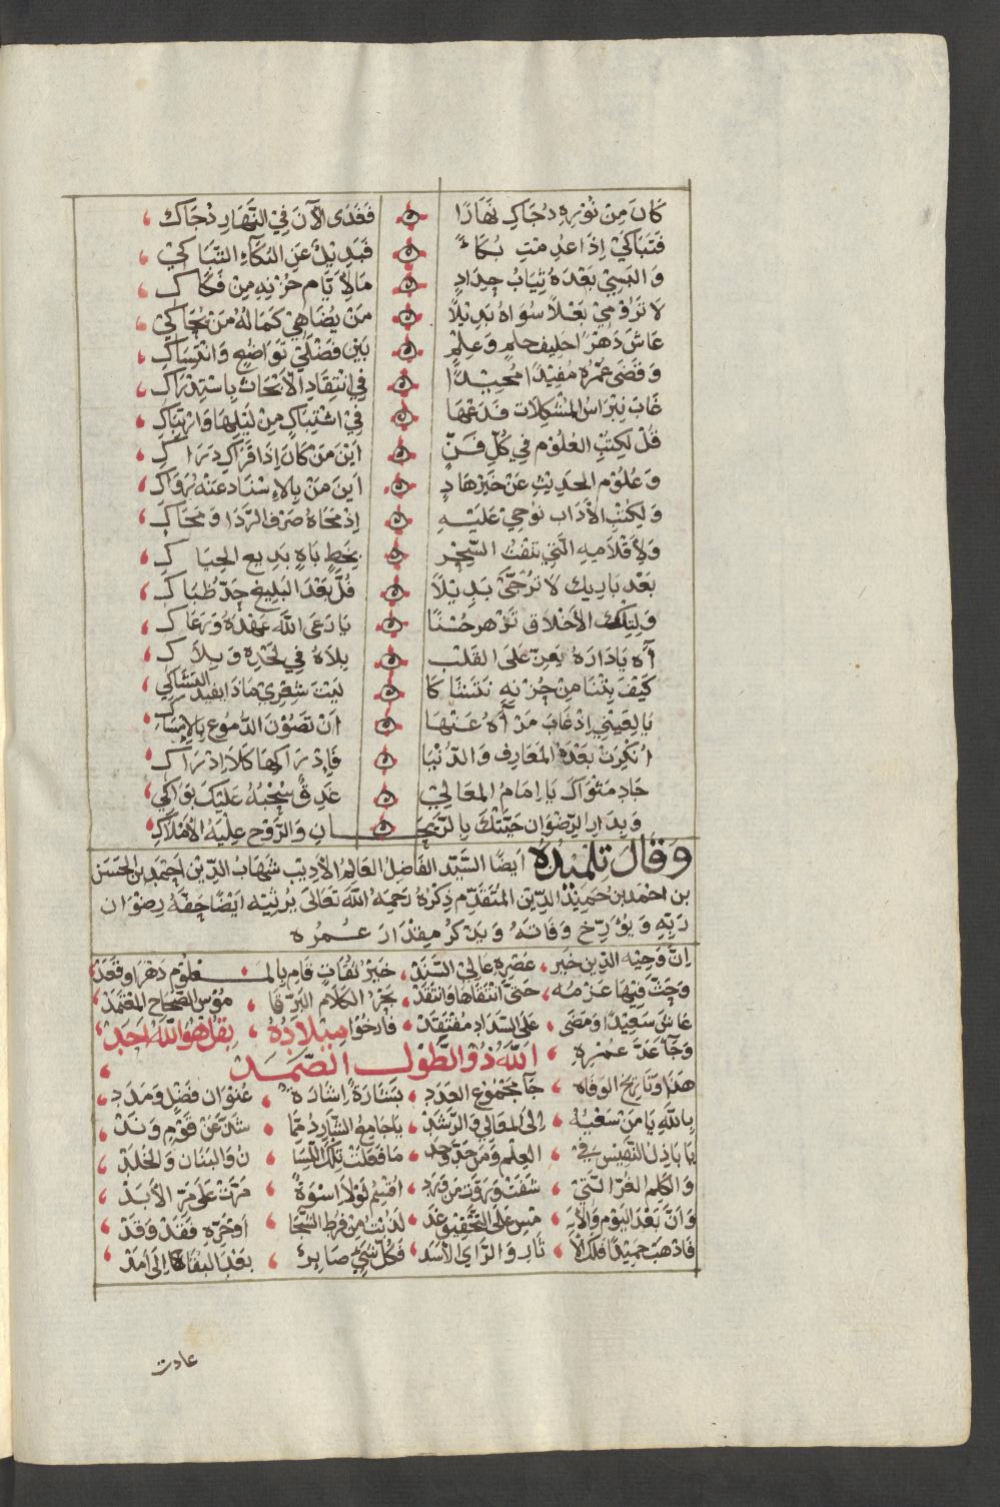 كَانَ مِن نُورِهِ دُجَاكِ نَهَارًا فَغَدَى الآنَ فِي النَّهَارِ دُجَاكِ
فَتَبَاكَيْ إِذَا عدِمْتِ بُكَاءً فَبَدِيْلٌ عَنِ البُكَاءِ التَّبَاكِيْ
وَالبَسِيْ بَعْدَهُ ثِيَابَ حِدَادٍ مَا لِأَيَّامِ حُزْنِهِ مِنْ فَكَاكِ
لَا تَرُومِيْ بَعْلًا سِوَاهُ بَدِيْلًا مَنْ يُضَاهِيْ كَمَالَهُ مَنْ يُحَاكِيْ
عَاشَ دَهْرًا حَلِيفَ حِلْمٍ وَعِلْمٍ بَيْنَ فَضْلَيْ تَوَاضُعٍ وَانْتِسَاكِ
وَقَضَى عُمْرَهُ مُفِيْدًا مُجِيْدًا فِي انْتِقَادِ الأَبْحَاثِ بِاسْتِدْرَاكِ
غَابَ نِبْرَاسُ المُشْكِلَاتِ فَدَعْهَا فِيْ اشْتِبَاكٍ مِنْ لَيْلِهَا وَارْتِبَاكِ
قُلْ لِكُتْبِ العُلُوْمِ فِي كُلِّ فَنٍّ أَيْنَ مَنْ كَانَ إِذَا قَرَاكِ دَرَاكِ
وَعُلُوْمِ الحَدِيْثِ عَنْ خَيْرِ هَادٍ أَيْنَ مَنْ بِالإِسْنَادِ عَنْهُ رَوَاكِ
وَلِكُتْبِ الآدَابِ نُوْحِيْ عَلَيْهِ إِذْ مَحَاهُ صَرْفُ الرَّدَا وَمَحَاكِ
وَلِأَقْلَامِهِ الَّتِيْ تنْفُثُ السِّحْرَ بِخَطٍّ بَاهٍ بَدِيعِ الحِيَاكِ
بَعْدَ بَارِيكِ لَا تُرَجَّىْ بَدِيْلًا فُلَّ بَعْدَ البَلِيغِ حَدُّ ظُبَاكِ
وَلِتِلْكَ الأَخْلَاقِ تَزْهَر حُسْنًا يَا رَعَى اللهُ عَهْدَهُ وَرَعَاكِ
آهِ يَا دَارَهُ يَعِزُّ عَلَى القَلْبِ بَلَاهُ فِي لَحْدِهِ وَبِلَاكِ
كَيْفَ بِتْنَا مِنْ حُزْنِهِ نَتَشَاكَا لَيْتَ شِعْرِيْ مَاذَا يُفِيْدُ التَّشَاكِي
يَا لِعَيْنِي إِذْ غَابَ مَرْآهُ عَنْهَا أَنْ تَصُوْنَ الدُّمُوعَ بِالإِمْسَاكِ
أُنْكِرَتْ بَعْدَهُ المَعَارِفُ وَالدُّنْيَا فَإِدْرَاكُهَا كَلَا إِدْرَاكِ
جَادَ مَثْوَاكَ يَا إِمَامَ المَعَالِيْ غَدِقٌ سُحْبُهُ عَلَيْكَ بَوَاكِي
وَبِدَارِ الرِّضْوَانِ حَيَّتْكَ بِالرَّيْحَانِ وَالرَّوْحِ عِلْيَةُ الأَمْلَاكِ
وَقَالَ تِلْمِيْذُهُ أَيْضًا السَّيِّدُ الفَاضِلُ العَالِمُ الأَدِيْبُ شِهَابُ الدِّيْنِ أَحْمَدُ بْنُ الحَسَنِ
بن أحمد بن حَمِيْدُ الدِّيْنِ المُتَقَدِّمِ ذِكْرُهُ رَحِمَهُ اللهُ تَعَالَى يَرْثِيْهِ أَيْضًا حَفَّهُ رِضْوَانُ
رَبِّهِ وَيُؤَرِّخُ وَفَاتَهُ وَيَذْكُرُ مِقْدَارَ عُمُرِهِ
إِنَّ وَجِيْهَ الدِّيْنِ خَير، عَصْرِهِ عَالِيْ السَّنَدْ، خَيْرُ ثِقَاتٍ قَامَ بِالمَعْلُوْمِ دَهْرًا وَقَعَدْ
وَجَدَّ فِيْهَا عَزْمُهُ، حَتَّى انْتَقَاهَا وَانْتَقَدْ، بَحْرُ الكَلَامِ البَرّ الصِّحَاحِ المُعْتَمَدْ
عَاشَ سَعِيْدًا وَمَضَى، عَلَى السَّدَادِ مُفْتَقَدْ، فَأَرِّخُوا مِيْلَادَهُ، بِقُلْ هُوَ اللهُ أَحَدْ،
وَجَاءَ عَدُّ عُمْرِهِ، اللهُ ذُو الطَّوْلِ الصَّمَدْ
هَذَا وَتَارِيخُ الوَفَاه، جَا مَجْمُوْعَ العَدَدِ، بِشَارَةً إِشَارَةً، عُنْوَانَ فَضْلٍ وَمَدَدِ
بِاللهِ يَا مَنْ سَعْيُهُ، إِلَى المَعَالِي وَالرَّشَدْ، يَا جَامِعَ الشَّارِدِ مِمَّا، شَذَّ عَنْ قَوْمٍ وَنَدّْ
يَا بَاذِلَ النَّفِيْسِ فِيْ، العِلْمِ وَمَنْ جَدَّ وَجَد، مَا فَعَلَتْ تِلْكَ اللِّسَانُ وَالبَنَانُ وَالخَلَدْ
وَالكَلِمُ الغُرُّ الَّتِيْ، شَفَتْ، أُقْسِمُ لَوْلَا أُسْوَةٌ، مَرَّتْ عَلَى مَرِّ الأَبَدْ
وَأَنَّ بَعْدَ اليَوْمِ، عَلَى التَّحْقِيْقِ غَد، لَذُبْتُ مِنْ فَرْطِ الشَّجَا، أَوْ حَرِّهِ فَقَدْ وَقَدْ
فَاذْهَبْ حَمِيْدًا فَلَكَ الآثَارُ وَالرَّايُ الأَسَدّْ، فَكُلُّ شَيْءٍ صَابِرٌ، بَعْدَ البَقَا إِلَى أَمَدْ
عادت